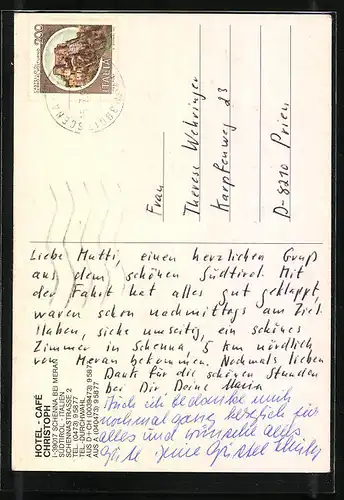 200
ITALIA
SCENA
Frau
Therese Wehringer
Kaepfenweg 23
D-8210 Prien
Liebe Mutti, einen herzlichen Gruß
aus dem schönen Südtirol. Mit
der Fahrt hat alles gut geklappt,
waren schon nachmittags am Ziel.
Haben, siehe umseitig, ein schönes
Zimmer in Schenna, 5 km nördlich
von Meran bekommen. Nochmals lieben
Dank für die schönen Stunden
bei Dir Deine Maria
Auch ich bedanke mich
nochmal ganz herzlich für
alles und wünsche alles
Gute
HOTEL - CAFÉ
CHRISTOPH
I-39017 SCHENNA BEI MERAN
SÜDTIROL - ITALIEN
SCHENNASTRASSE 2
TEL. (0473) 95877
TEL.-DURCHWAHL
AUS D+CH (0039473) 95877
AUS A (040473) 95877